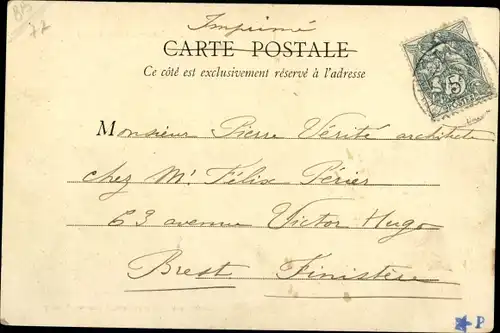 Imprimé
CARTE POSTALE
Ce côté est exclusivement réservé à l'adresse
Monsieur Pierre Vérité architecte
chez Mr Félix Périer
63 avenue Victor Hugo
Brest Finistère
5
P